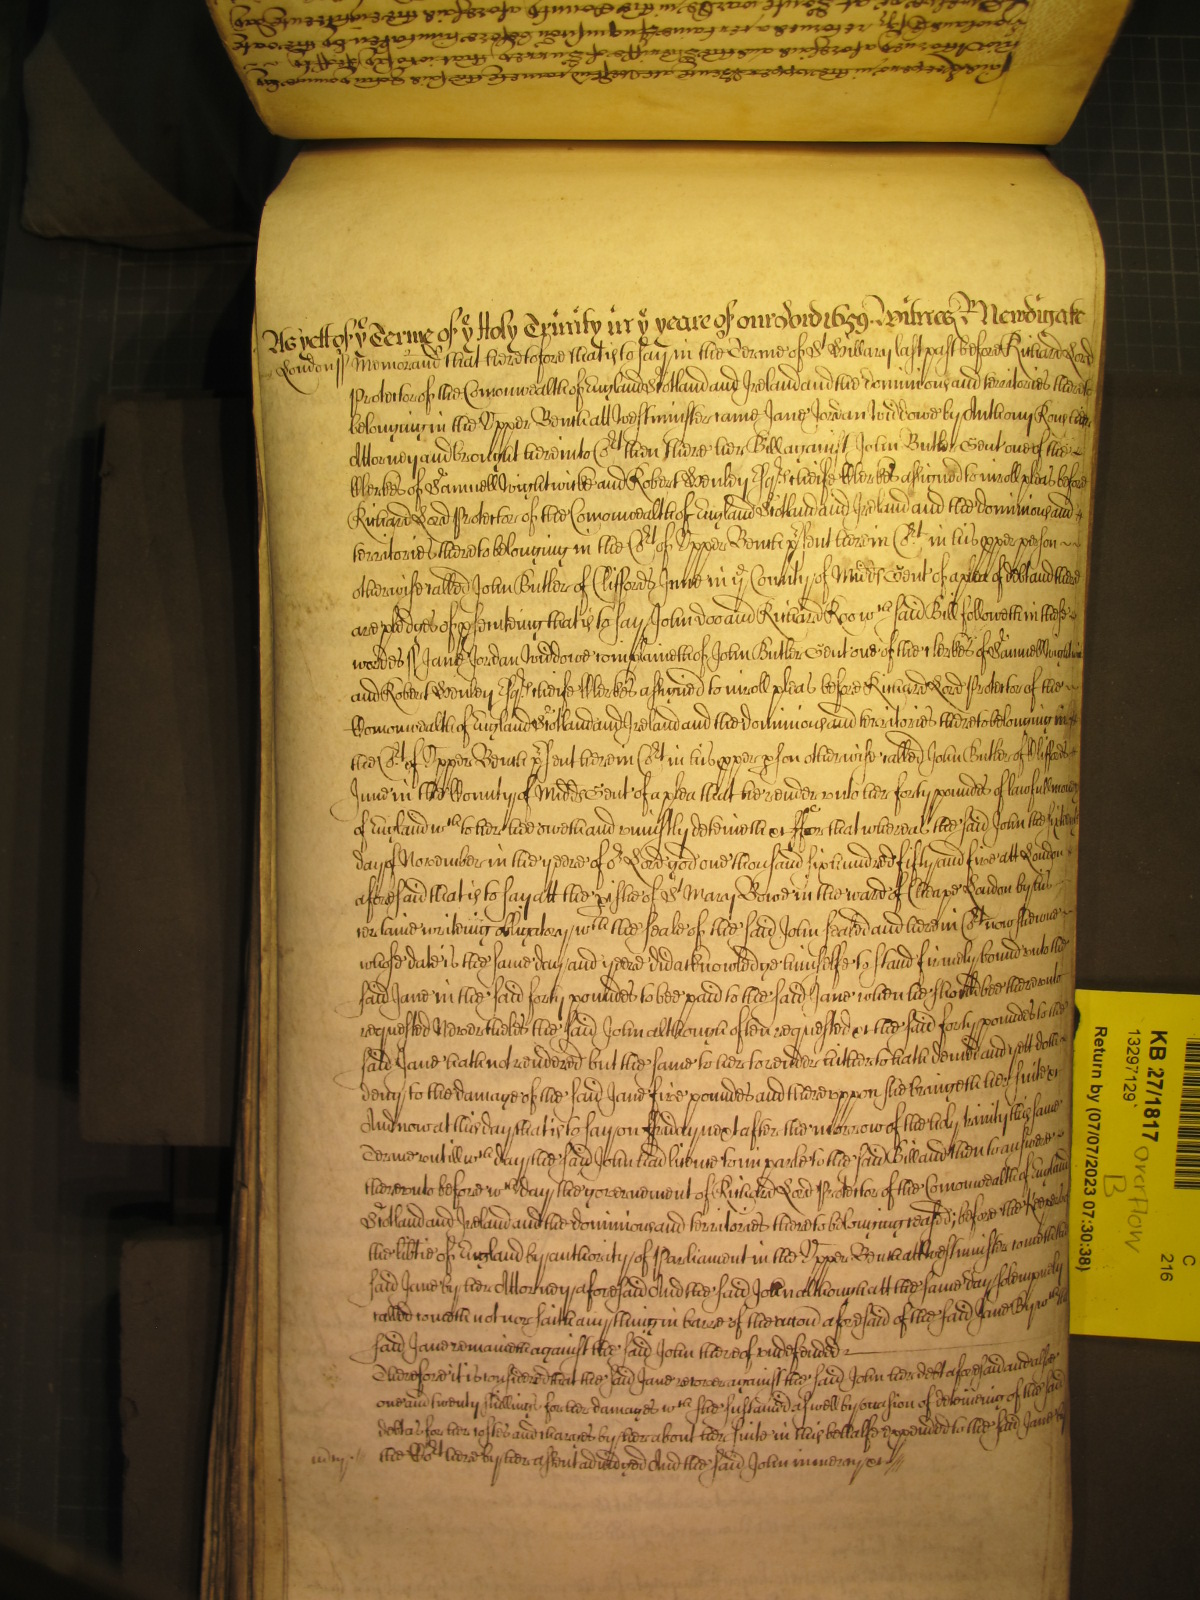 As yett of yͤ Terme of yͤ Holy Trinity in yͤ yeare of our Lord 1659. Witnes R Newdigate
London ss Memorand that heretofore that is to say in the Terme of Sᵗ Hillary last past before Richard Lord
Protector of the Comonwealth of England Scotland and Ireland and the dominions and territories thereto
belonging in the Upper Bench att Westminster came Jane Jordan Widdowe by Anthony Rowe her
Attorney and brought here into Cᵗ then there her Bill against John Butler Gent one of the
Clerkes of Samuell Wightwicke and Robert Henley Esqʳˢ cheife Clerkes assigned to inroll pleas before
Richard Lord Protector of the Comonwealth of England Scotland and Ireland and the dominions and
territories thereto belonging in the Cᵗ of Upper Bench pʳsent here in Cᵗ in his pper person
otherwise called John Butler of Cliffords Inne in yͤ County of Midd Gent of a plea of debt and there
are pledges of psecuting that is to say John Doo and Richard Roo wᶜʰ said Bill followeth in these
wordes ss Jane Jordan Widdowe complaineth of John Butler Gent one of the clerkes of Samuell Wightwicke
and Robert Henley Esqʳˢ cheife Clerkes assigned to inroll pleas before Richard Lord Protector of the
Comonwealth of England Scotland and Ireland and the dominions and territories thereto belonging in
the Cᵗ of Upper Bench pʳsent here in Cᵗ in his pper pson otherwise called John Butler of Cliffords
Inne in the County of Midd Gent of a plea that he render unto her forty poundes of lawfull money
of England wᶜʰ to her hee oweth and uniustly deteineth &c For that whereas the said John the
day of November in the yeere of oʳ Lord god one thousand six hundred fifty and five att London
aforesaid that is to say att the pishe of Sᵗ Mary Bowe in the ward of Cheape London by his
certaine writeing obligatory wᵗʰ the seale of the said John sealed and here in Cᵗ now shewne
whose date is the same day and yeere did acknowledge himselfe to stand firmely bound unto the
said Jane in the said forty poundes to bee paid to the said Jane when he should bee thereunto
requested Neverthelesse the said John although often requested &c the said forty poundes to the
said Jane hath not rendered but the same to her to render hitherto hath denied and yett doth
deny to the damage of the said Jane five poundes and thereuppon shee bringeth her suite &c
And now at this day that is to say on Fryday next after the morrow of the holy trinity this same
Terme untill wᶜʰ day the said John had licence to imparle to the said Bill and then to answere
thereunto before wᶜʰ day the government of Richard Lord Protector of the Comonwealth of England
Scotland and Ireland and the dominions and territories thereto belonging ceased; before the Keepers of
the libtie of England by authority of Parliament in the Upper Bench att Westminster cometh the
said Jane by her Attorney aforesaid And the said John although att the same day solempnely
called cometh not nor saith any thing in barre of the accon aforesaid of the said Jane By wᶜʰ the
said Jane remaineth against the said John thereof undefended
Therefore it is considered that the said Jane recover against the said John her debt aforesaid and alsoe
one and twenty shillings for her damages wᶜʰ shee susteined aswell by occasion of deteineing of the said
debt as for her costes and charges by her about her suite in this behalfe expended to the said Jane by
the Coʳᵗ here by her assent adiudged And the said John in mercy &c
KB 27/1817 overflow B
13297129
Return by (07/07/2023 07:30:38)
C
216